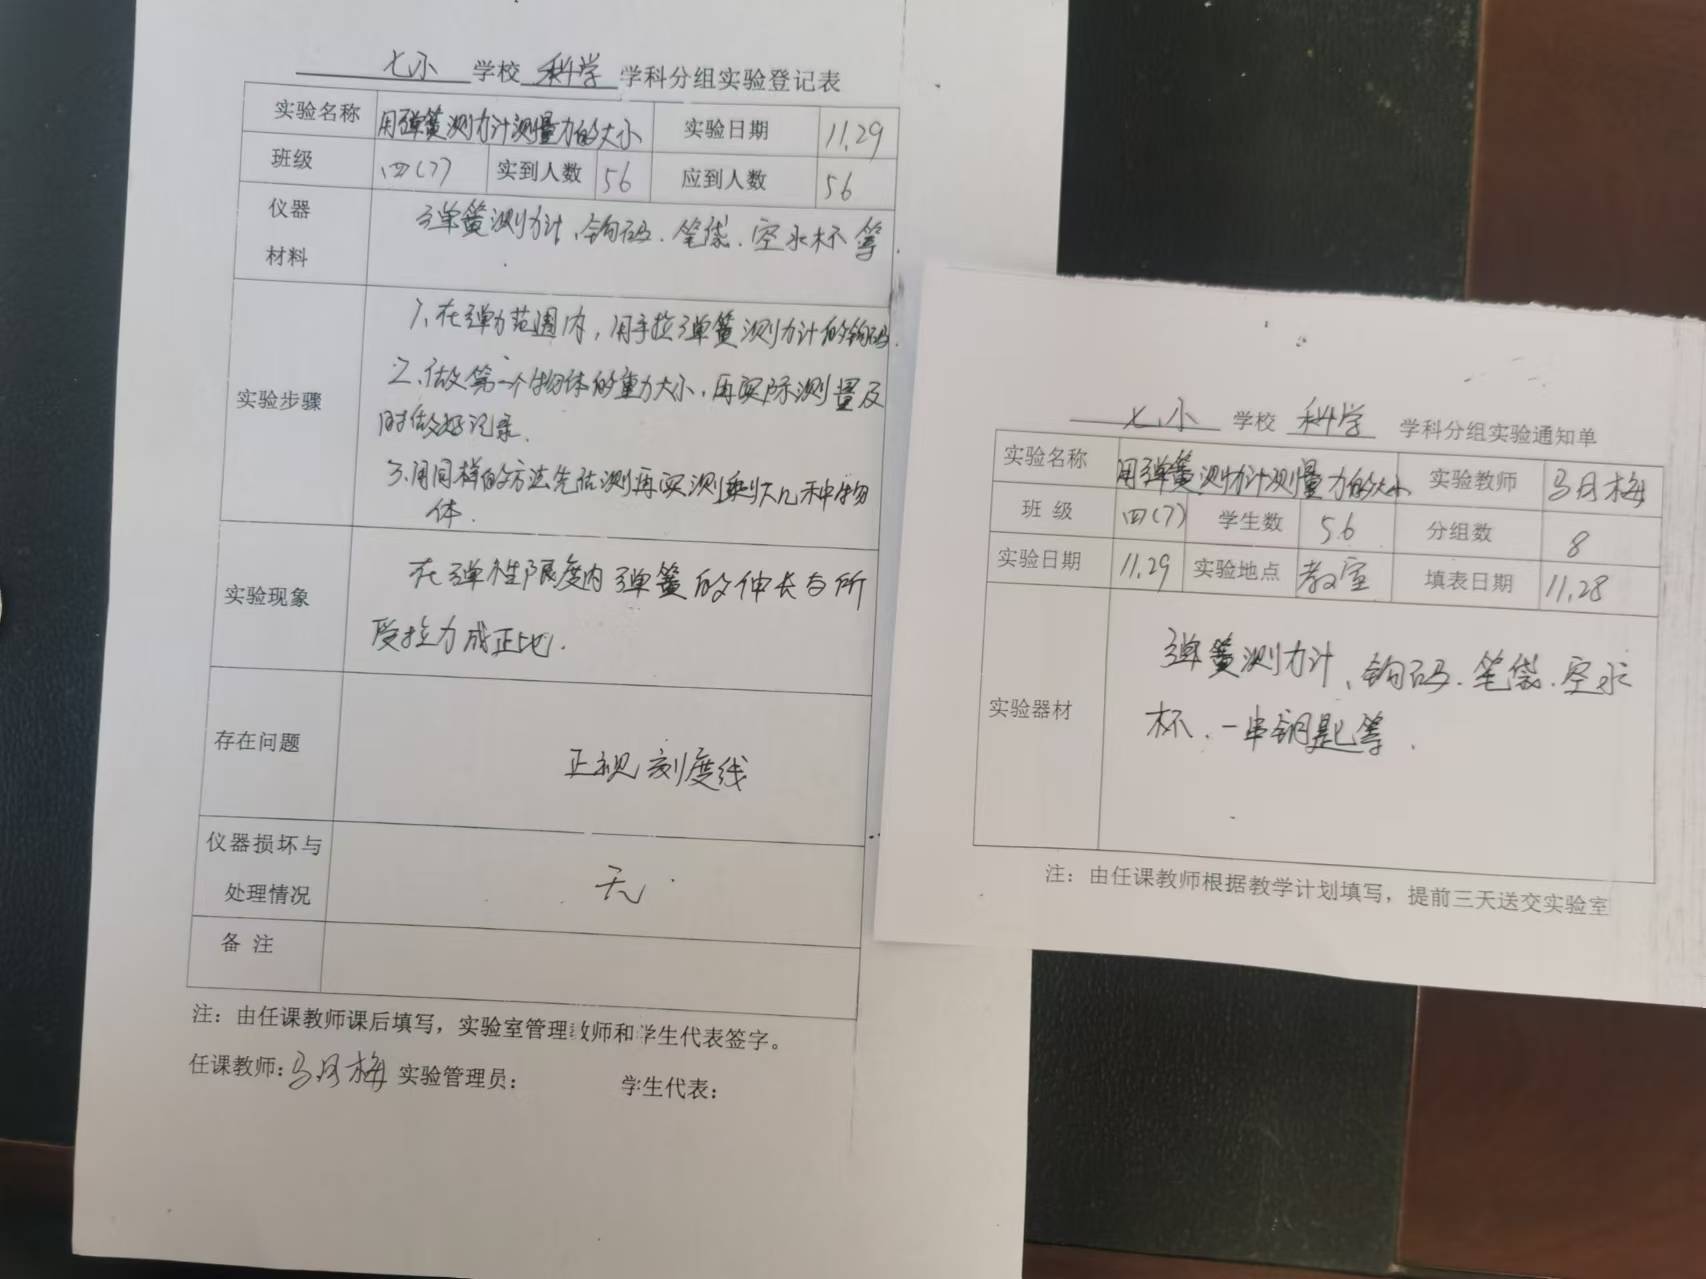 七小 学校 科学 学科分组实验登记表
实验名称 用弹簧测力计测量力的大小 实验日期 11.29
班级 四(7) 实到人数 56 应到人数 56
仪器
材料
弹簧测力计、钩码、笔袋、空水杯等.
实验步骤
1、在弹力范围内,用手拉弹簧测力计的钩码.
2、做第一个物体的重力大小,再实际测量及
时做好记录.
3.用同样的方法先估测再实测剩大几种物
体.
实验现象
在弹性限度内弹簧的伸长与所
受拉力成正比.
存在问题
正视刻度线
仪器损坏与
处理情况
无.
备 注
注:由任课教师课后填写,实验室管理教师和学生代表签字。
任课教师:马月梅 实验管理员: 学生代表:
七小 学校 科学 学科分组实验通知单
实验名称 用弹簧测力计测量力的大小 实验教师 马月梅
班 级 四(7) 学生数 56 分组数 8
实验日期 11.29 实验地点 教室 填表日期 11.28
实验器材
弹簧测力计、钩码.笔袋.空水
杯.一串钥匙等.
注:由任课教师根据教学计划填写,提前三天送交实验室